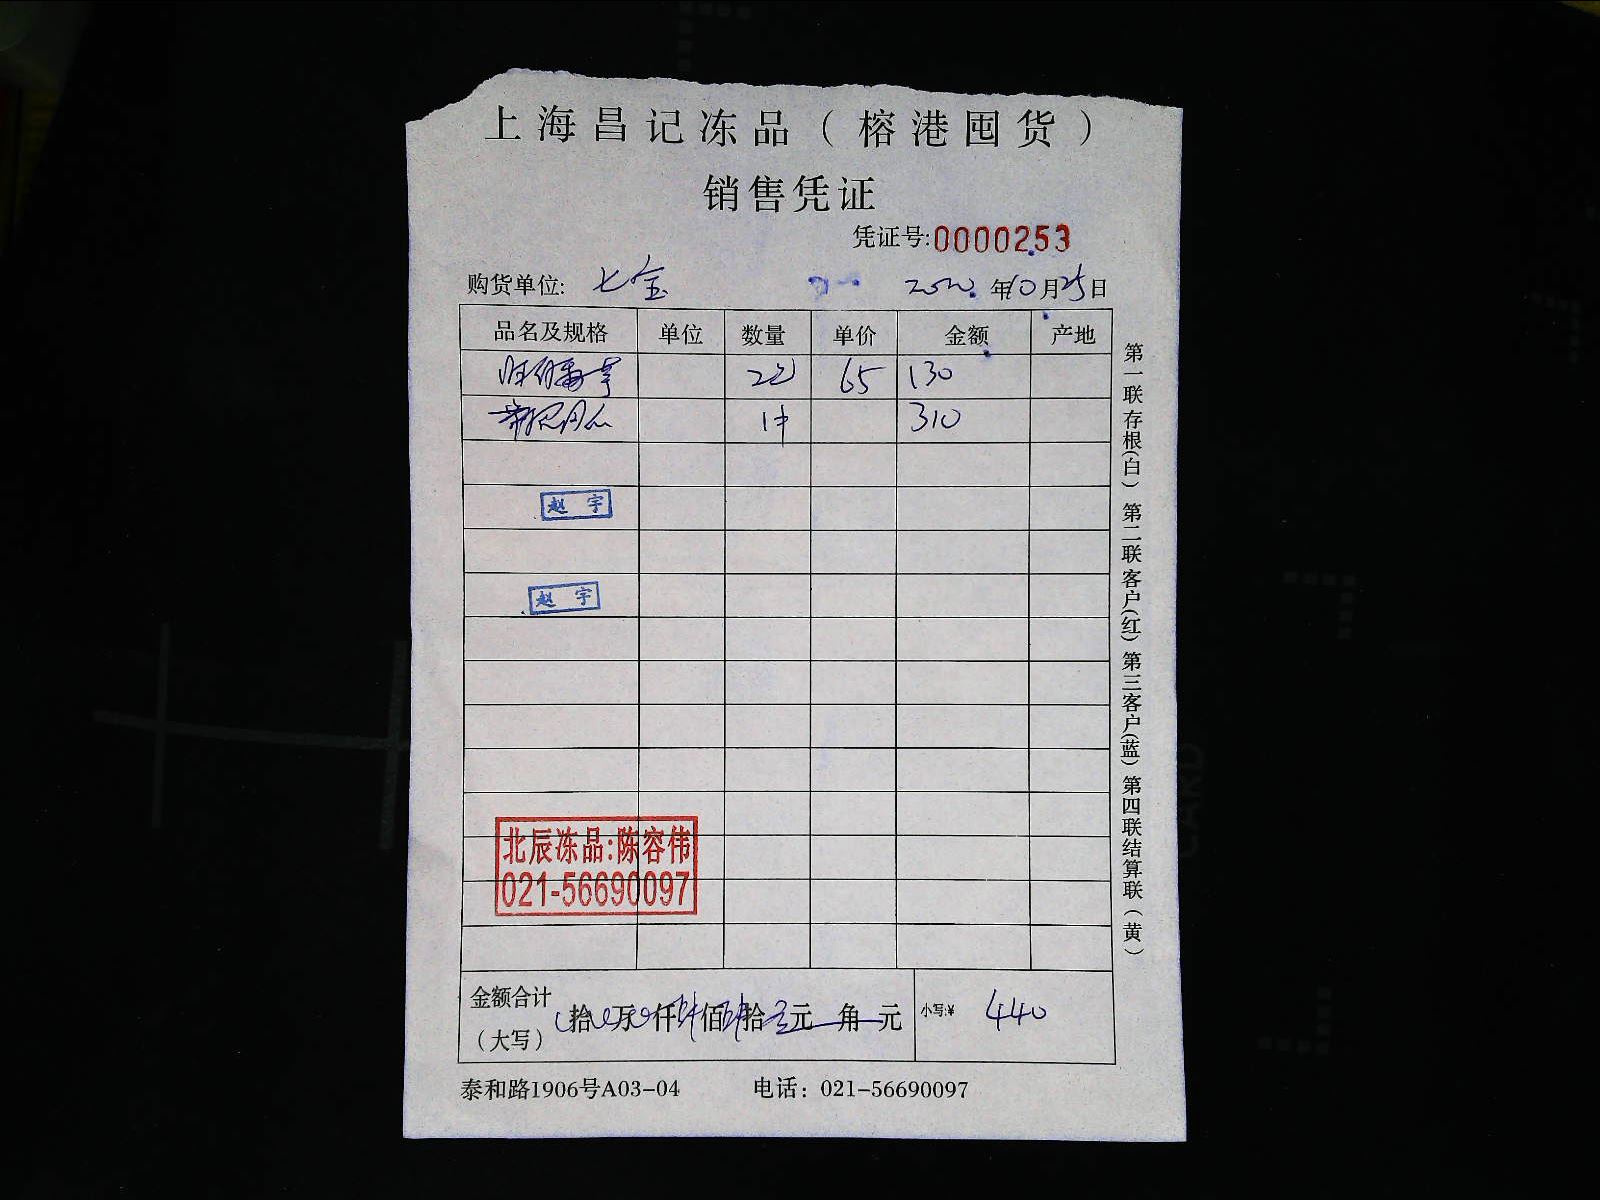 上海昌记冻品（榕港囤货）
销售凭证
凭证号:0000253
购货单位: 七宝 2020年10月25日
品名及规格 单位 数量 单价 金额 产地
65 130
1件 310
赵宇
赵宇
北辰冻品:陈容伟
021-56690097
金额合计（大写） 拾 万 仟 佰 拾 元 角 元 小写:¥ 440
泰和路1906号A03-04 电话：021-56690097
第一联存根(白) 第二联客户(红) 第三客户(蓝) 第四联结算联（黄）